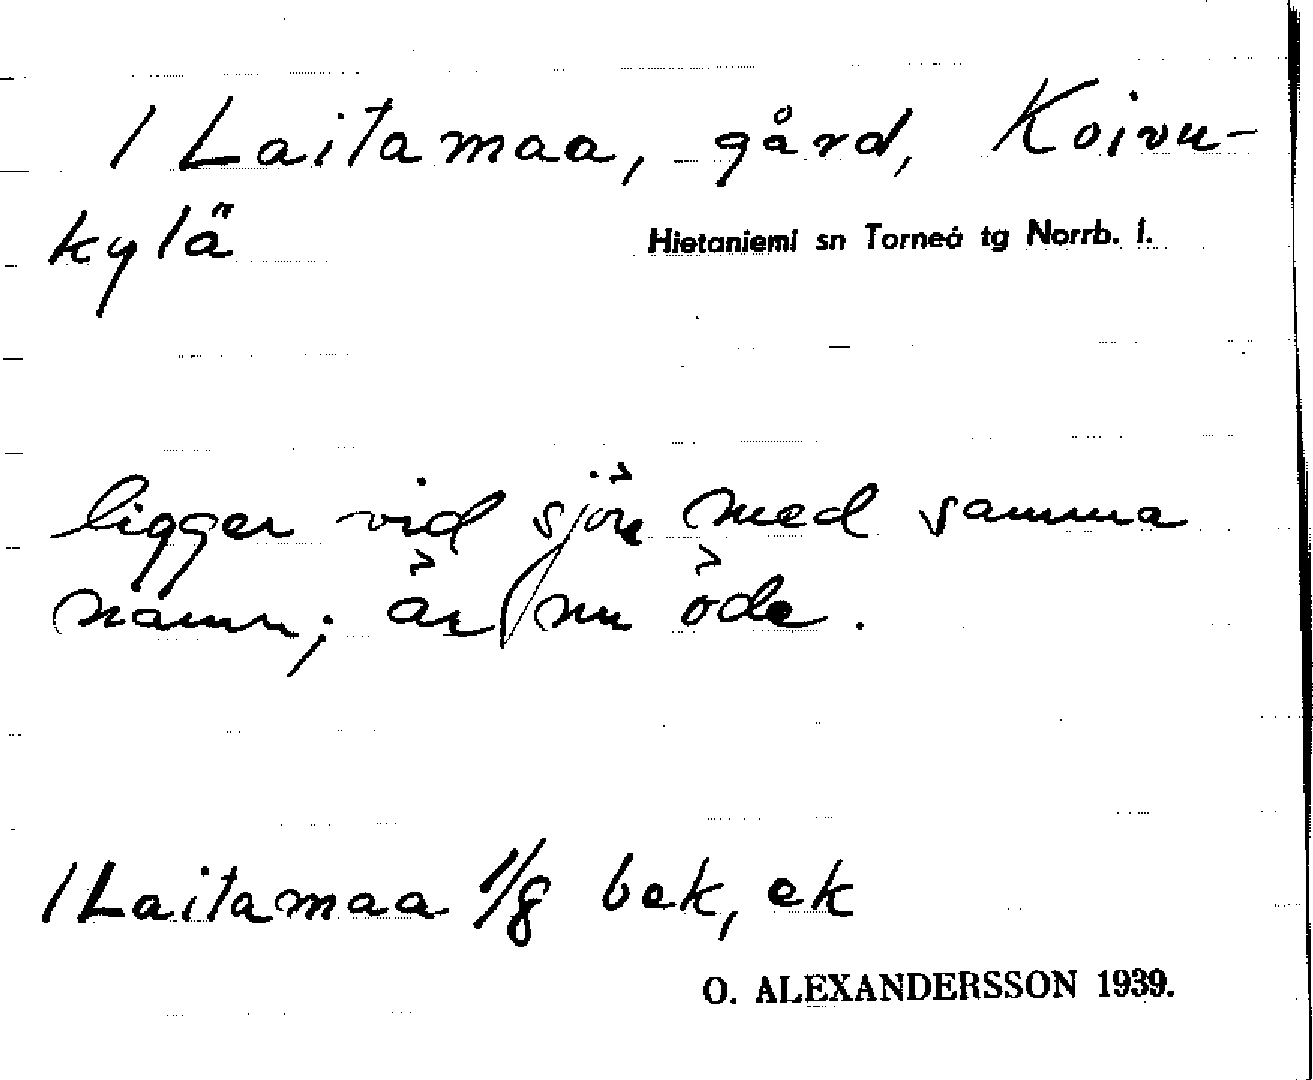 / Laitamaa, gård, Koivu-
kylä
Hietaniemi sn Torneå tg Norrb. l.
ligger vid sjön med samma
namn; är nu öde.
/ Laitamaa 1/8 bek, ek
O. ALEXANDERSSON 1939.